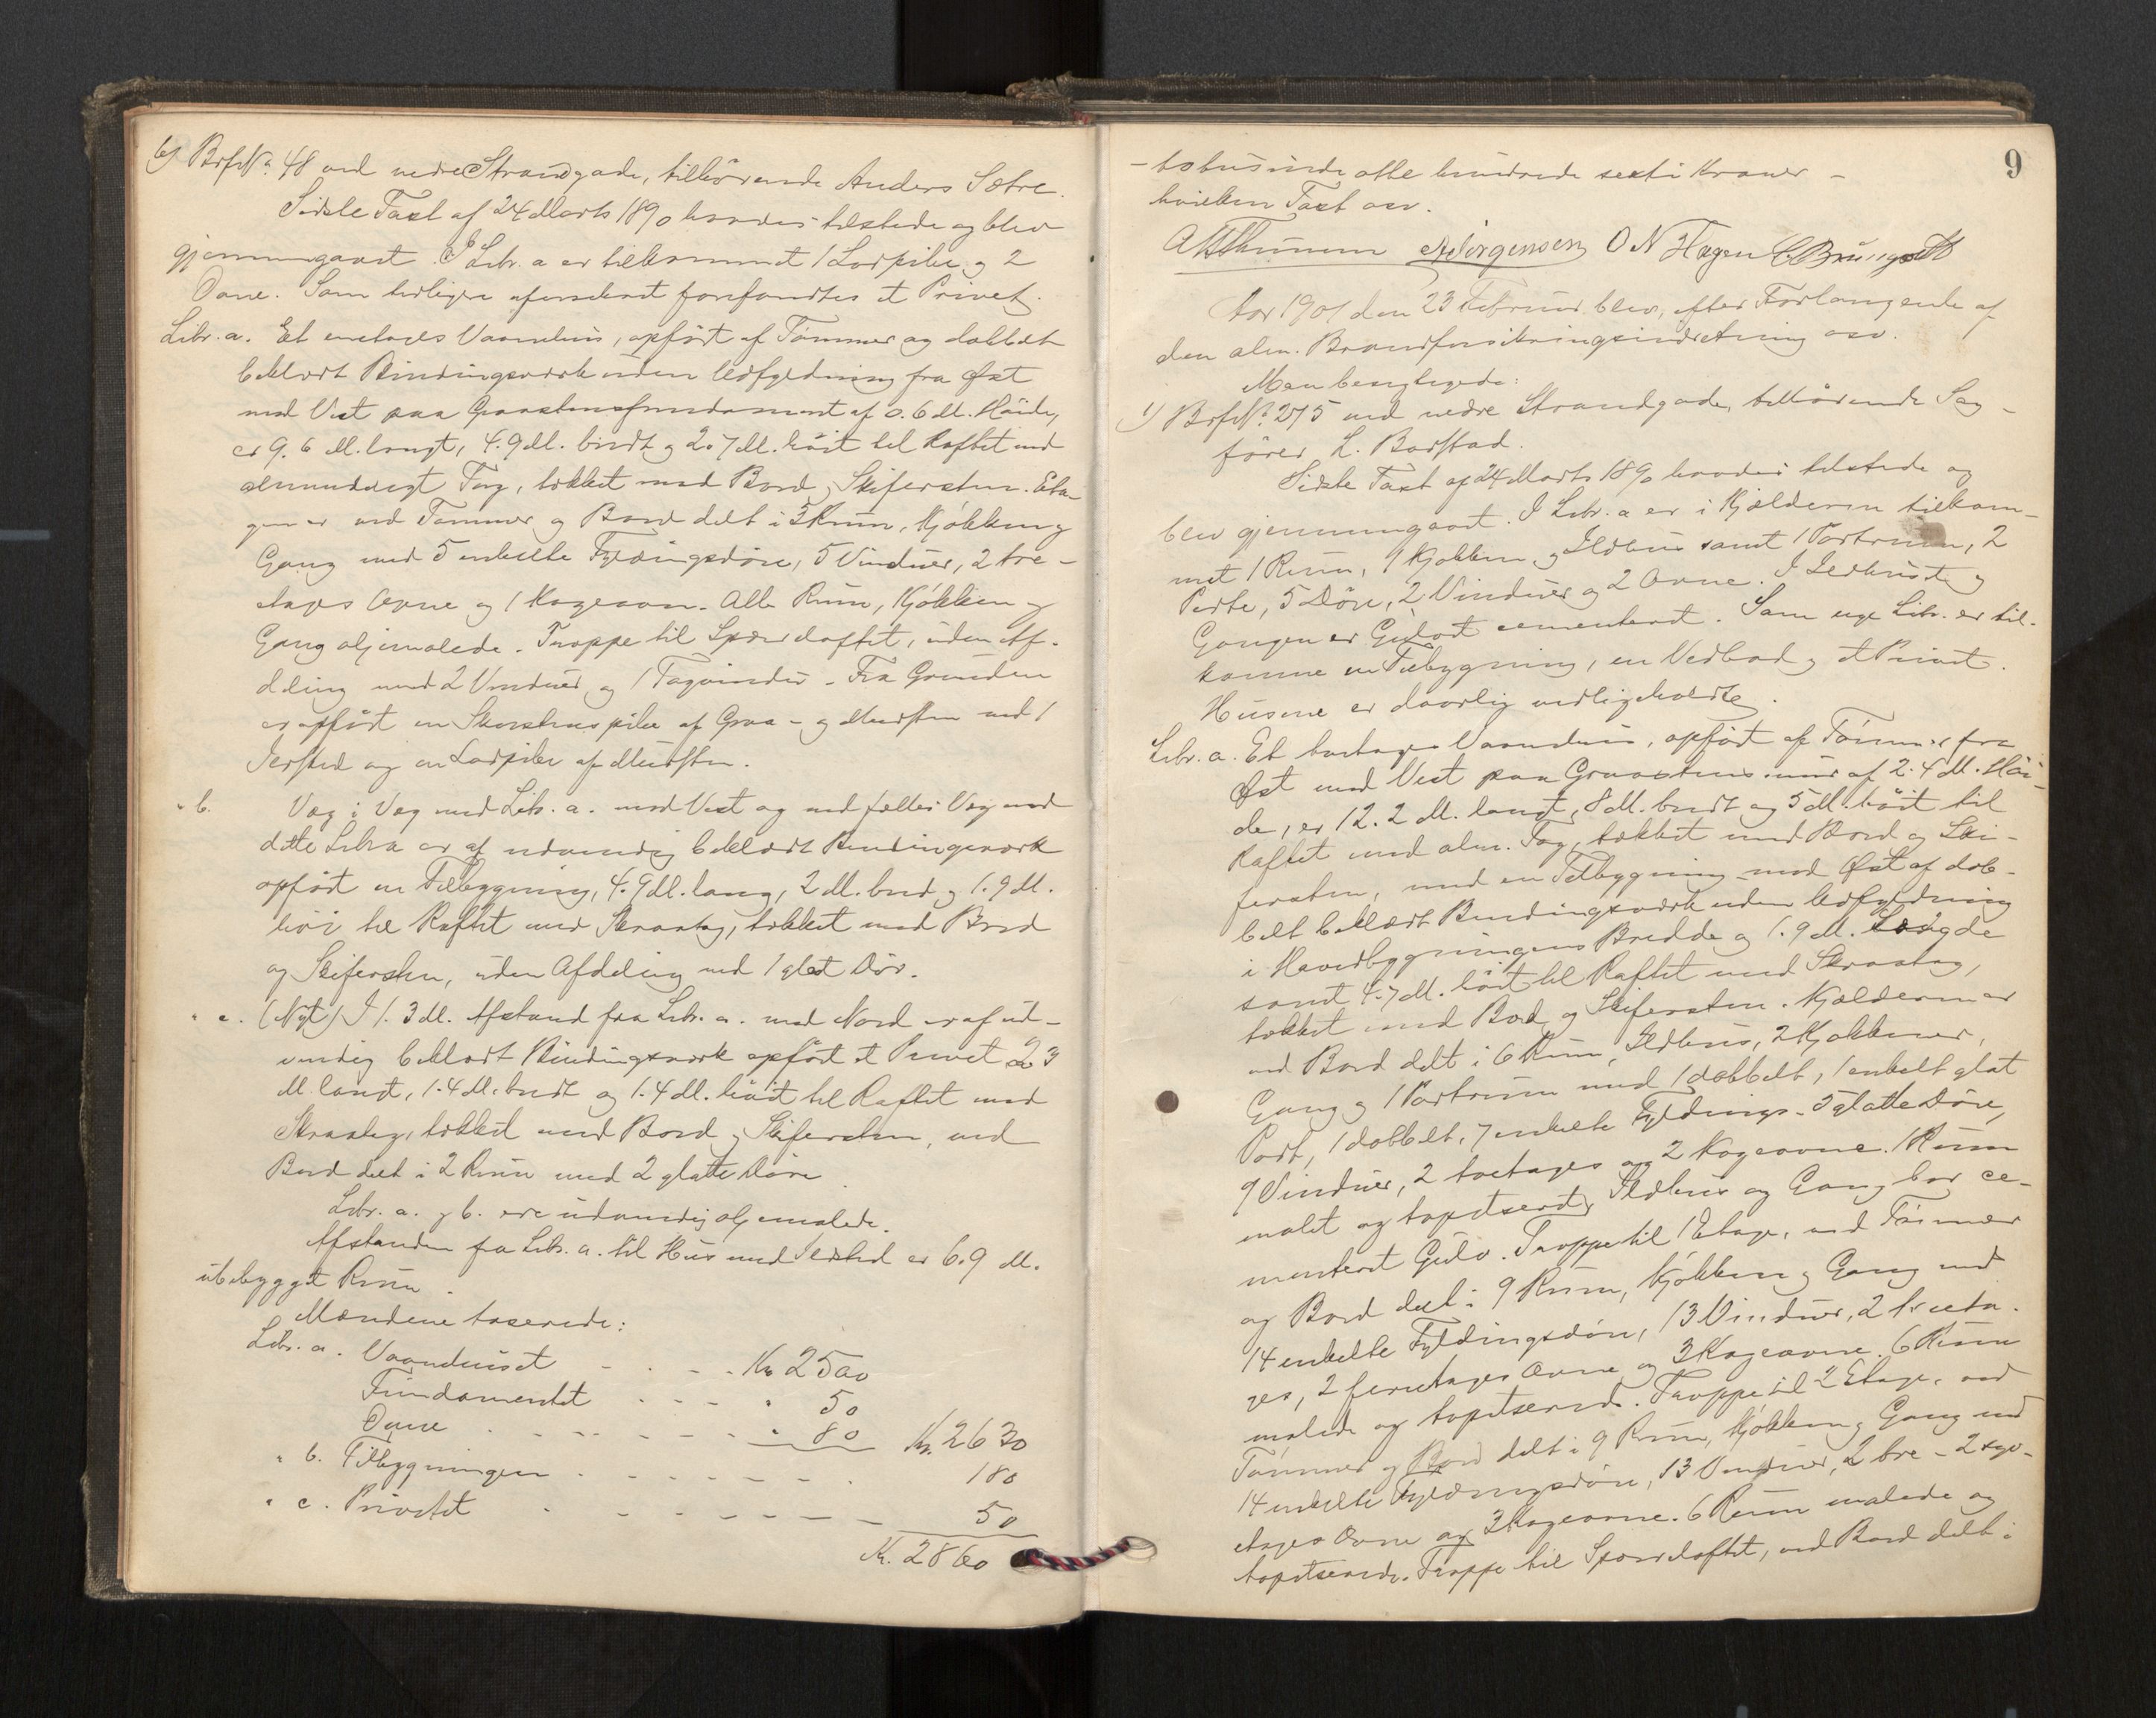 6) Brfs№ 48 ved nedre Strandgade, tilhörende Anders Sætre.
Sidste Taxt af 24 Marts 1890 havdes tilstede og blev
gjennemgaaet. I Litr. a er tilkommet 1 Lodpibe og 2
Ovne. Som tidligere uforsikret forefandtes et Privet.
Litr. a. Et enetages Vaaningshus, opfört af Tömmer og dobbelt
beklædt Bindingsværk uden Udfyldning fra Øst
mod Vest paa Graastensfundament af 0.6 M. Höide,
er 9.6 M. langt, 4.9 M. bredt og 2.7 M. höit til Raftet med
almindeligt Tag, tækket med Bord og Skifersten. Eta-
gen er ved Tömmer og Bord delt i 3 Rum, Kjökken og
Gang med 5 enkelte Fyldingsdöre, 5 Vinduer, 2 tre-
etages Ovne og 1 Kogeovn. Alle Rum, Kjökken og
Gang oljemalede. Trappe til Spærreloftet, uden Af-
deling med 2 Vinduer og 1 Tagvindu. Fra Grunden
er opfört en Skorstenspibe af Graa- og Mursten med 1
Ildsted og en Lodpibe af Mursten.
" b. Væg i Væg med Litr. a. mod Vest og med fælles Væg med
dette Litra er af udvendig beklædt Bindingsværk
opfört en Tilbygning, 4.9 M. lang, 2 M. bred og 1.9 M.
höi til Raftet med Skraatag, tækket med Bord
og Skifersten, uden Afdeling med 1 glat Dör.
" c. (Nyt) I 1.3 M. Afstand fra Litr. a. mod Nord er af ud-
vendig beklædt Bindingsværk opfört et Privet 2.3
M. langt, 1.4 M. bredt og 1.4 M. höit til Raftet med
Skraatag, tækket med Bord og Skifersten, ved
Bord delt i 2 Rum med 2 glatte Döre.
Litr. a. og b. ere udvendig oljemalede.
Afstanden fra Litr. a. til Hus med Ildsted er 6.9 M.
ubebygget Rum.
Mændene taxerede:
Litr. a. Vaaningshuset - - - Kr 2500
Fundamentet - - - " 50
Ovne - - - - - - " 80 Kr. 2630
" b. Tilbygningen - - - - - - 180
" c. Privetet - - - - - - 50
Kr. 2860
9
- totusinde otte hundrede sexti Kroner -
hvilken Taxt osv.
A Jörgensen O N Hagen C. Brüngodt
Aar 1901 den 23 Februar blev, efter Forlangende af
den alm. Brandforsikringsindretning osv.
Man besigtigede:
1) Brfs№ 275 ved nedre Strandgade, tilhörende Sag-
förer L. Barstad.
Sidste Taxt af 24 Marts 1890 havdes tilstede og
blev gjennemgaaet. I Litr. a er i Kjælderen tilkom-
met 1 Rum, 1 Kjökken og Ildhus samt 1 Portrum, 2
Porte, 5 Döre, 2 Vinduer og 2 Ovne. I Ildhuset og
Gangen er Gulvet cementeret. Som nye Litr. er til-
komne en Tilbygning, en Vedbod og et Privet.
Husene er daarlig vedligeholdte.
Litr. a. Et toetages Vaaningshus, opfört af Tömmer fra
Øst mod Vest paa Graastensmur af 2.4 M. Höi-
de, er 12.2 M. langt, 8 M. bredt og 5 M. höit til
Raftet med alm. Tag, tækket med Bord og Ski-
fersten, med en Tilbygning mod Øst af dob-
belt beklædt Bindingsværk uden Udfyldning
i Hovedbygningens Bredde og 1.9 M. Længde
samt 4.7 M. höit til Raftet med Skraatag,
tækket med Bord og Skifersten. Kjælderen er
ved Bord delt i 6 Rum, Ildhus, 2 Kjökkener,
Gang og 1 Portrum med 1 dobbelt, 1 enkelt glat
Port, 1 dobbelt, 7 enkelte Fyldings- 5 glatte Döre,
9 Vinduer, 2 toetages og 2 Kogeovne. 1 Rum
malet og tapetseret, Ildhus og Gang har ce-
menteret Gulv. Trappe til 1 Etage, ved Tömmer
og Bord delt i 9 Rum, Kjökken og Gang med
14 enkelte Fyldingsdöre, 13 Vinduer, 2 treeta-
ges, 2 fireetages Ovne og 3 Kogeovne. 6 Rum
malede og tapetserede. Trappe til 2 Etage, ved
Tömmer og Bord delt i 9 Rum, Kjökken og Gang med
14 enkelte Fyldingsdöre, 13 Vinduer, 2 tre- 2
etages Ovne og 3 Kogeovne. 6 Rum malede og
tapetserede. Trappe til Spærreloftet, ved Bord delt i